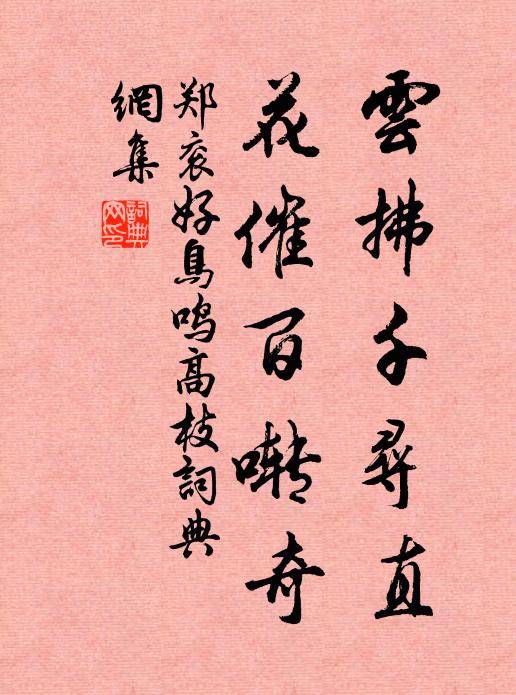 雲拂千尋直
花催百啭奇
郑衮好鳥鸣高枝詞典
網集
詞典
网印